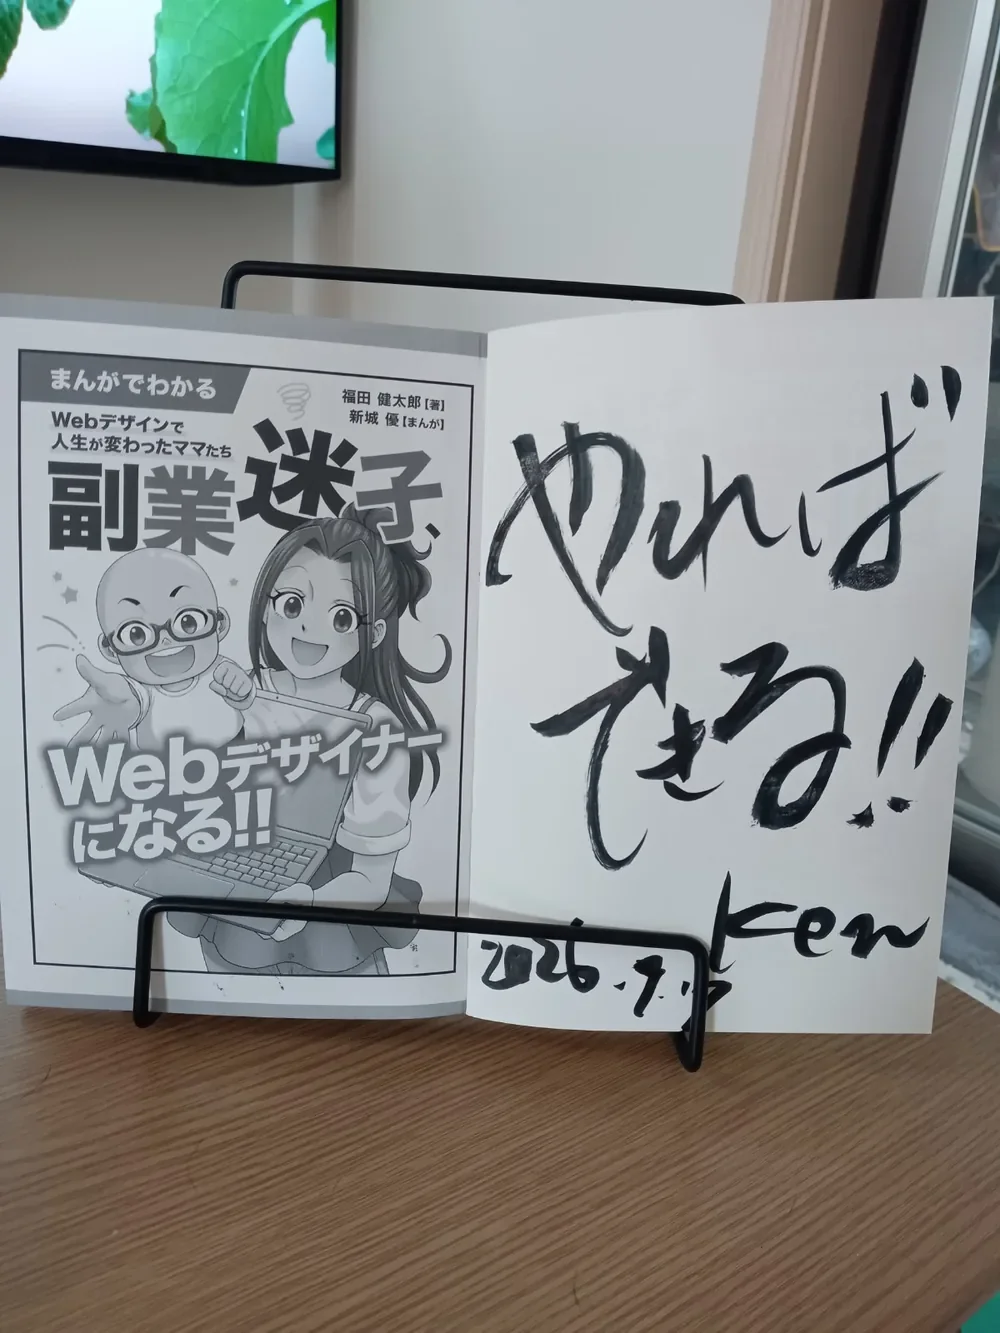 まんがでわかる
福田 健太郎【著】
新城 優【まんが】
Webデザインで
人生が変わったママたち
副業迷子、
Webデザイナー
になる!!
やれば
できる!!
Ken
2026.7.